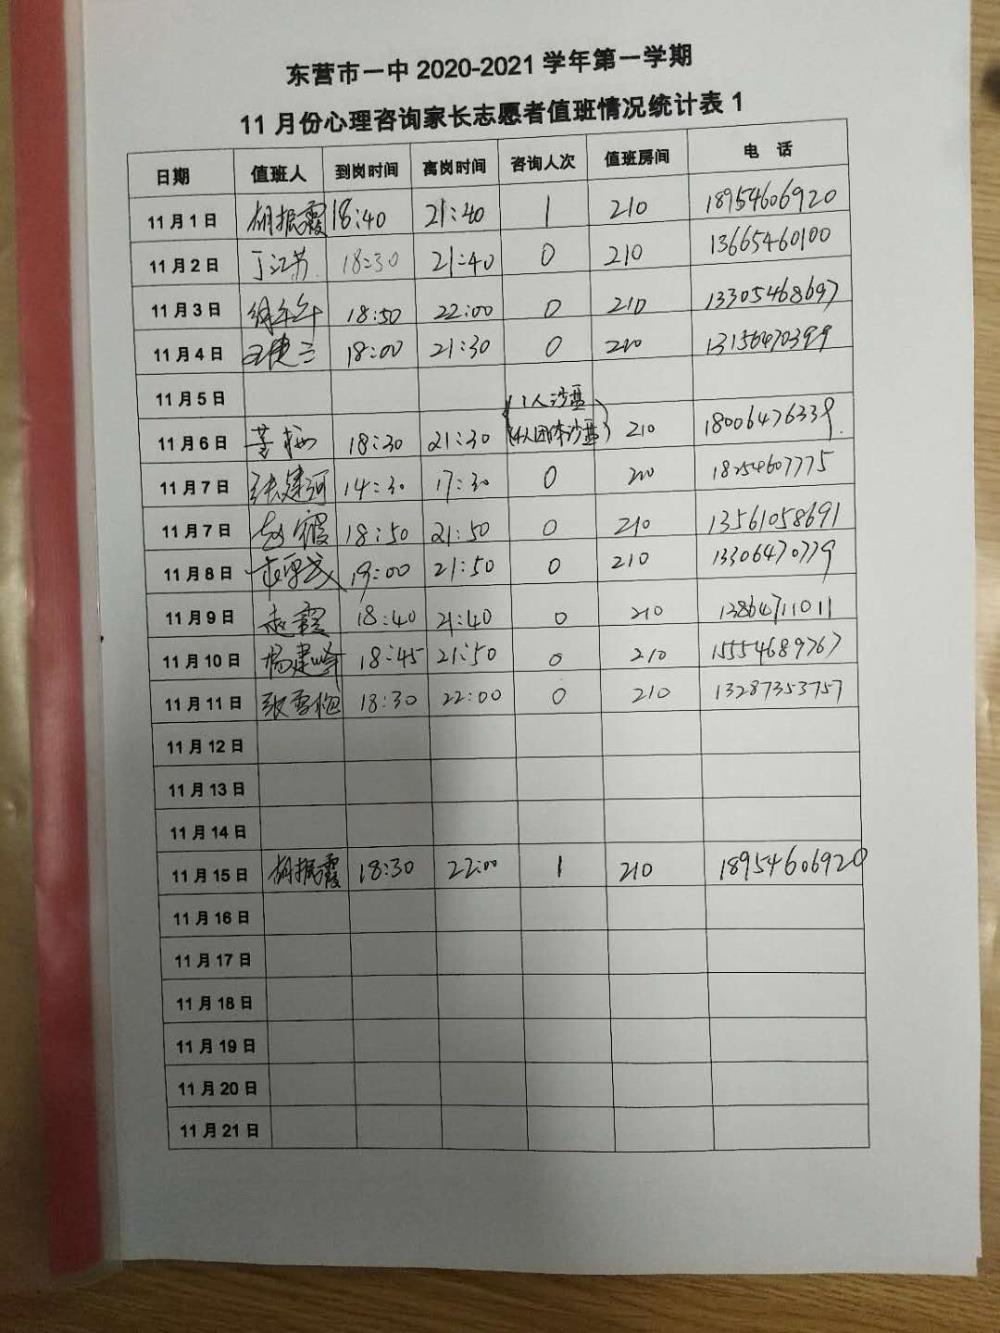 东营市一中 2020-2021 学年第一学期
11 月份心理咨询家长志愿者值班情况统计表 1
日期 值班人 到岗时间 离岗时间 咨询人次 值班房间 电 话
11 月 1 日 胡振霞 18:40 21:40 1 210 18954606920
11 月 2 日 丁江芳 18:30 21:40 0 210 13665460100
11 月 3 日 18:50 22:00 0 210 13305468697
11 月 4 日 18:00 21:30 0 210 13156470399
11 月 5 日
11 月 6 日 18:30 21:30 (1人沙盘 4人团体沙盘) 210 18006476339
11 月 7 日 张建河 14:30 17:30 0 210 18254607775
11 月 7 日 赵霞 18:50 21:50 0 210 13561058691
11 月 8 日 19:00 21:50 0 210 13306470779
11 月 9 日 赵霞 18:40 21:40 0 210 13864711011
11 月 10 日 杨建峰 18:45 21:50 0 210 15554689767
11 月 11 日 张雪艳 18:30 22:00 0 210 13287353757
11 月 12 日
11 月 13 日
11 月 14 日
11 月 15 日 胡振霞 18:30 22:00 1 210 18954606920
11 月 16 日
11 月 17 日
11 月 18 日
11 月 19 日
11 月 20 日
11 月 21 日